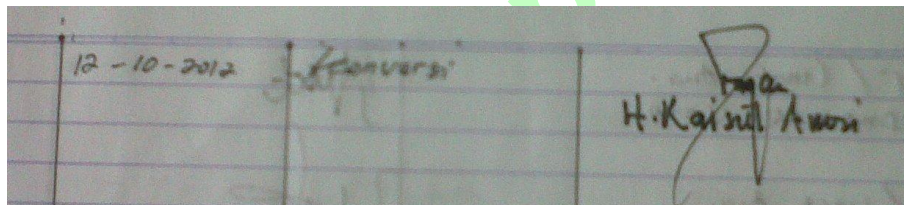 12-10-2012
Konversi
H. Kaisul Amri